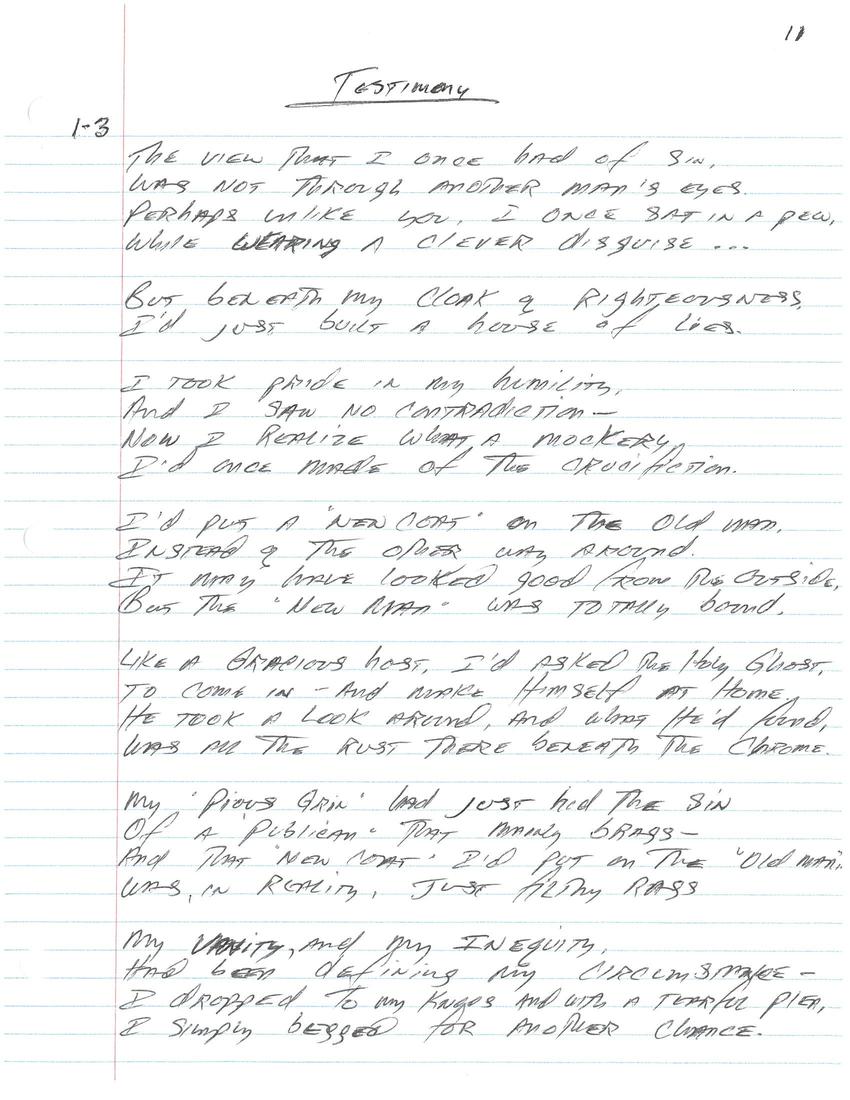 11
Testimony
1-3
The view that I once had of sin,
Was not through another man's eyes.
Perhaps unlike you, I once sat in a pew,
While wearing a clever disguise ...
But beneath my cloak of righteousness,
I'd just built a house of lies.
I took pride in my humility,
And I saw no contradiction—
Now I realize what a mockery,
I'd once made of the crucifiction.
I'd put a "new coat" on the old man,
Instead of the other way around.
It may have looked good from the outside,
But the "New Man" was totally bound.
Like a gracious host, I'd asked the Holy Ghost,
To come in - and make Himself at home.
He took a look around, and what He'd found,
Was all the rust there beneath the chrome.
My "Pious Grin" had just hid the sin
Of a "Publican" that mainly brags—
And that "new coat" I'd put on the "Old man",
Was, in reality, just filthy rags
My vanity, and my inequity,
Had been defining my circumstance—
I dropped to my knees and with a tearful plea,
I simply begged for another chance.